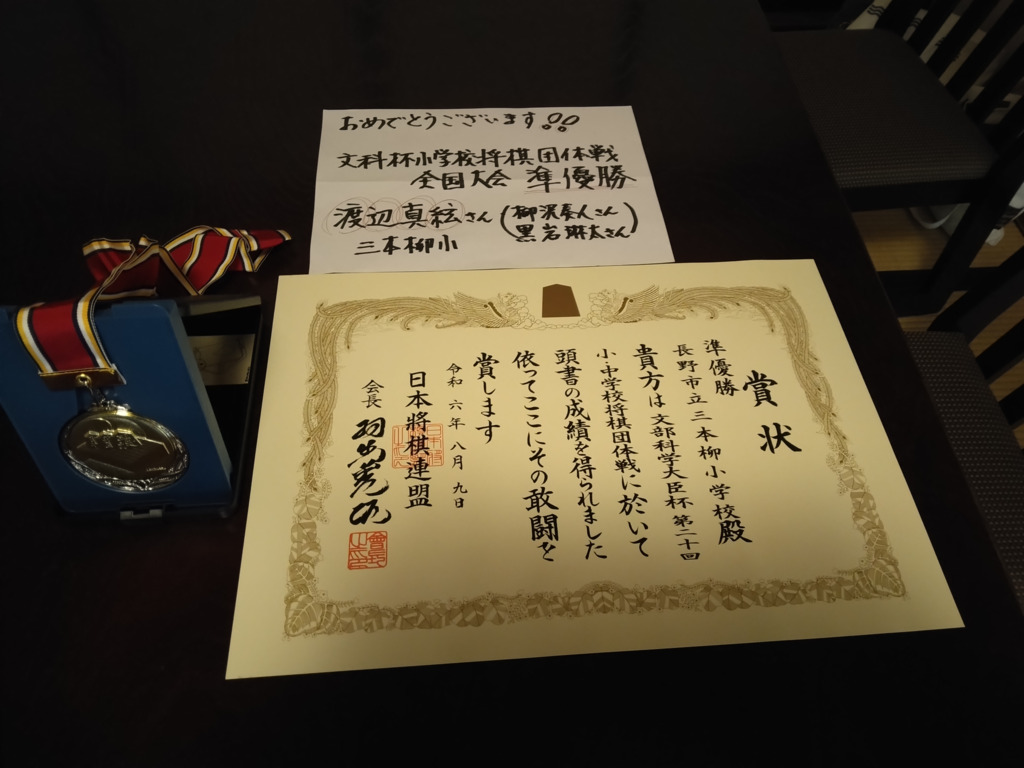 おめでとうございます!!
文科杯小学校将棋団体戦
全国大会 準優勝
渡辺真絃さん(柳沢奏人さん
黒岩琳太さん)
三本柳小
賞状
準優勝
長野市立三本柳小学校殿
貴方は文部科学大臣杯第二十回
小・中学校将棋団体戦に於いて
頭書の成績を得られました
依ってここにその敢闘を
賞します
令和六年八月九日
日本将棋連盟
会長 羽生善治